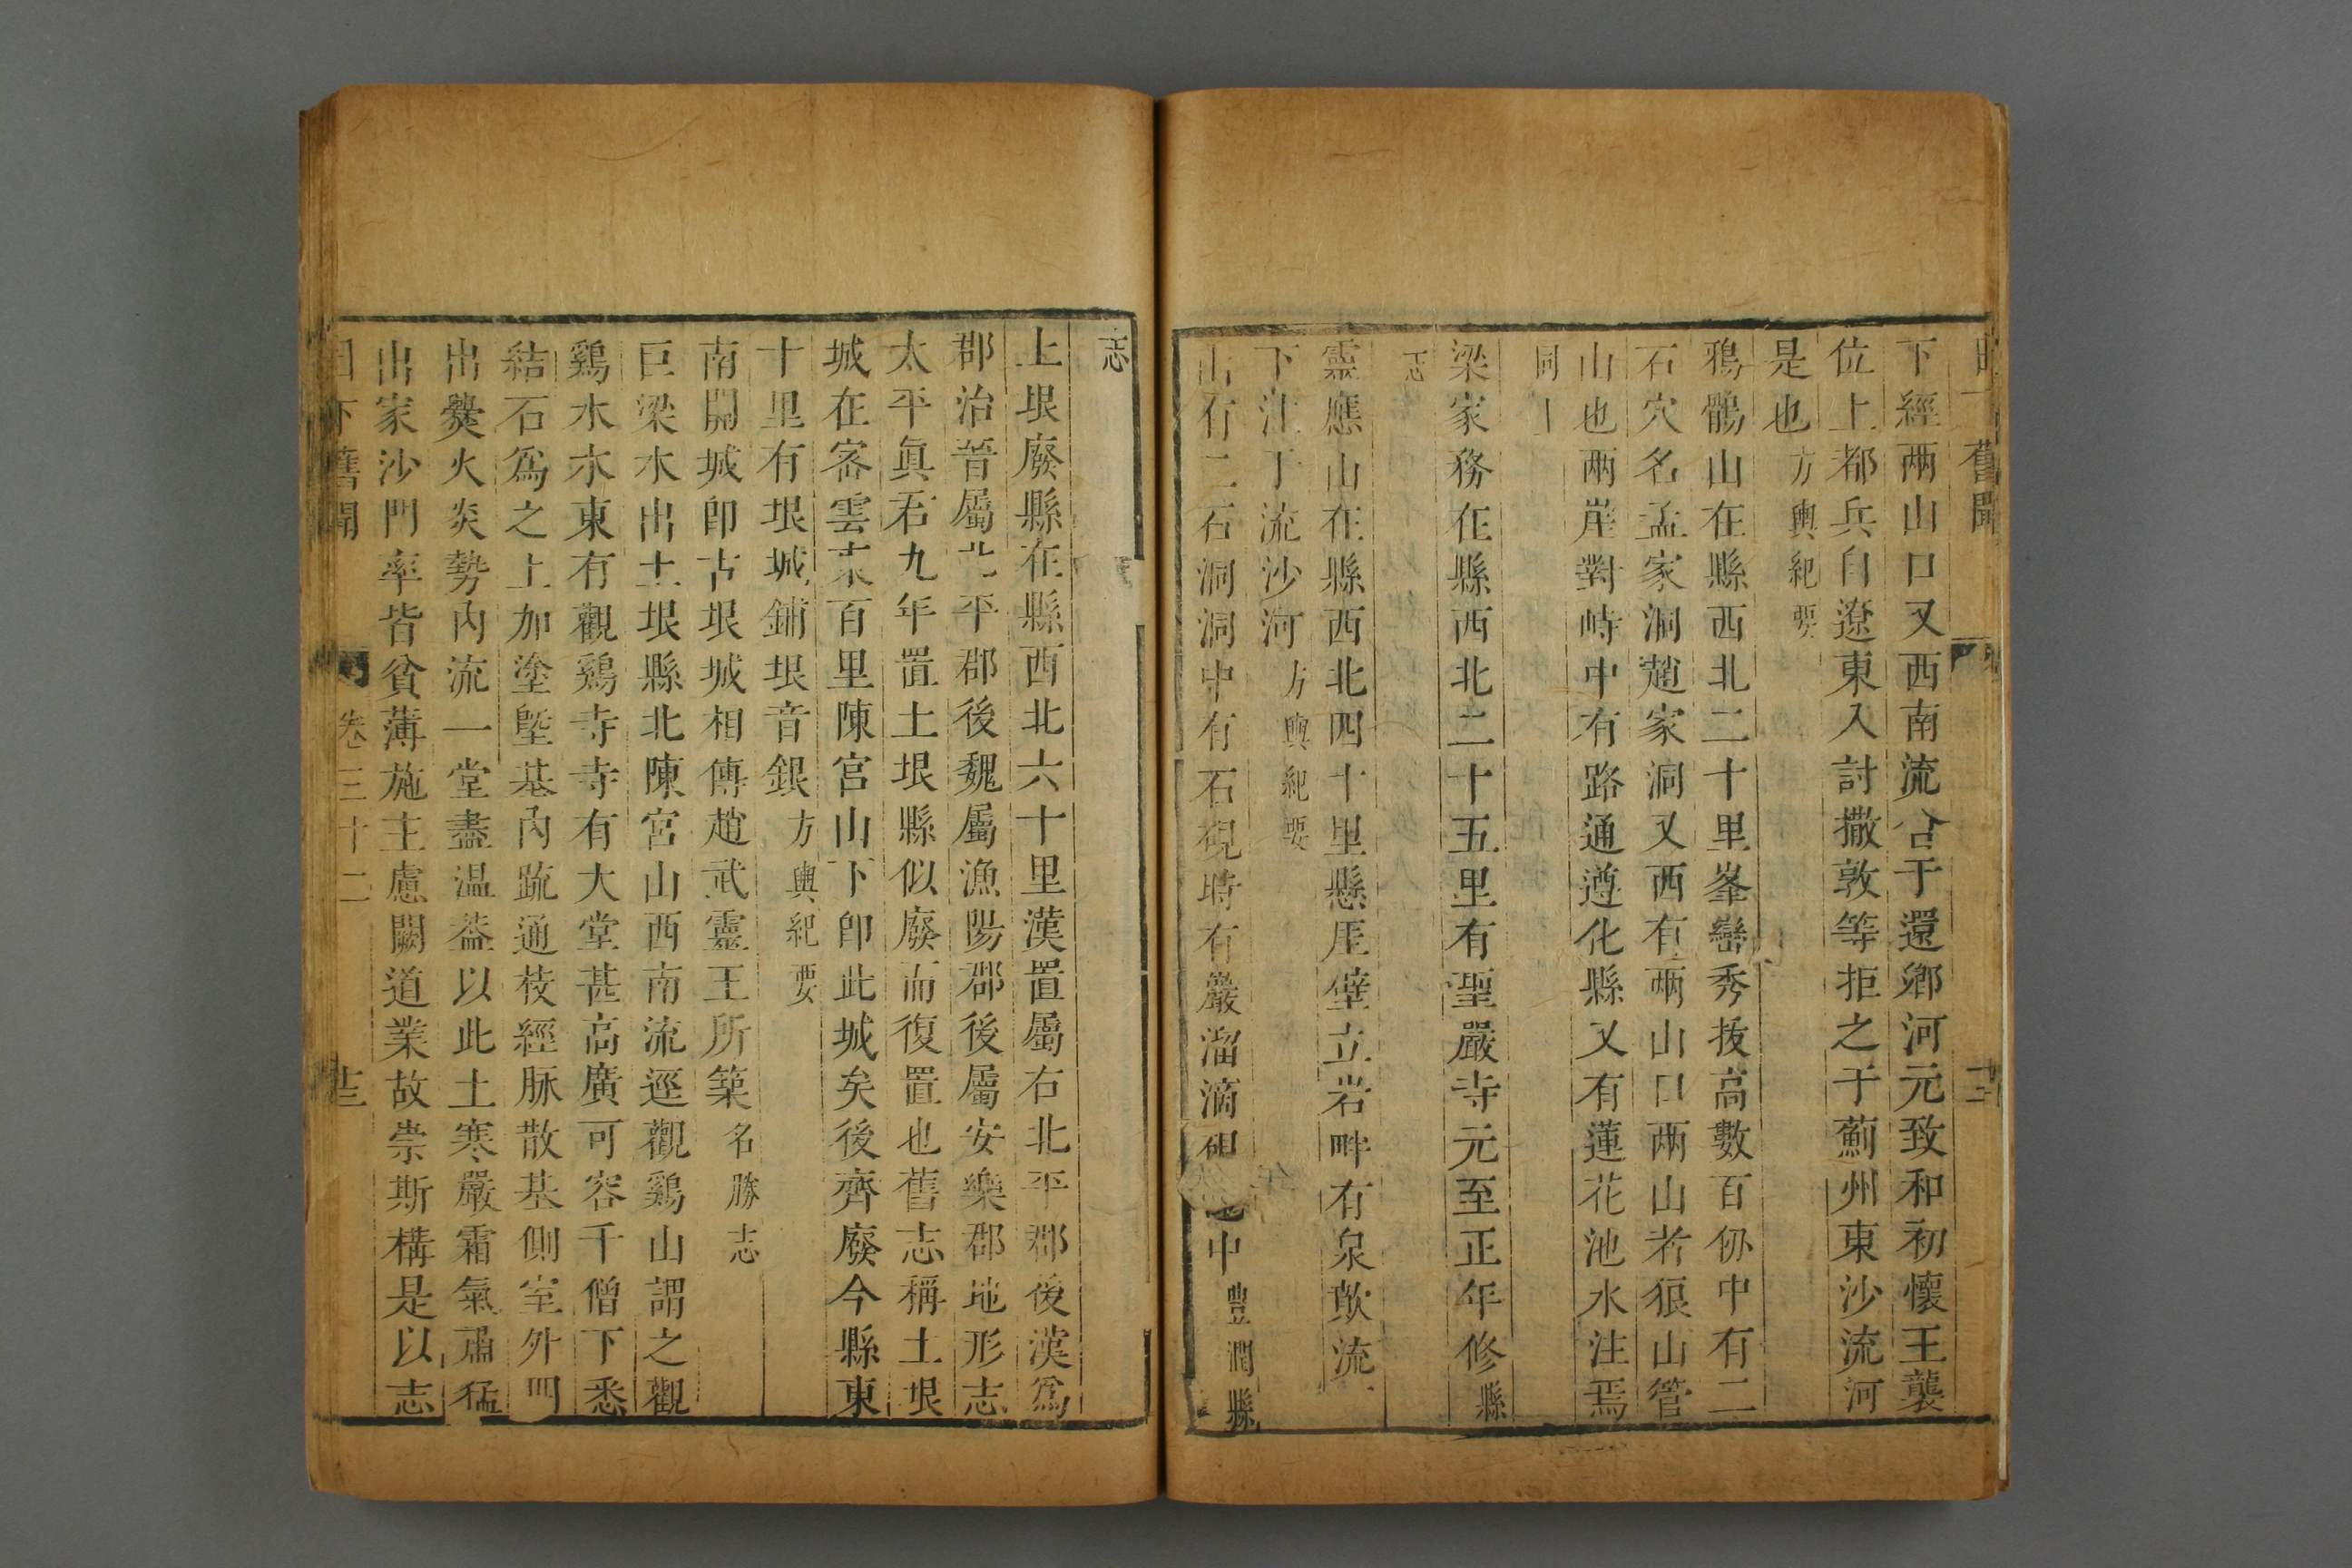 舊聞
下經兩山口又西南流合于還鄉河元致和初懷王襲
位上都兵自遼東入討撒敦等拒之于薊州東沙流河
是也方輿紀要
鴉鶻山在縣西北二十里峯巒秀拔高數百仞中有二
石穴名孟家洞趙家洞又西有兩山口兩山者狼山管
山也兩崖對峙中有路通遵化縣又有蓮花池水注焉
同上
梁家務在縣西北二十五里有聖嚴寺元至正年修縣
志
靈應山在縣西北四十里懸厓壁立岩畔有泉歕流
下注丁流沙河方輿紀要
山有二石洞洞中有石硯時有嚴溜滴硯中豐潤縣
志
土垠廢縣在縣西北六十里漢置屬右北平郡後漢爲
郡治晉屬北平郡後魏屬漁陽郡後屬安樂郡地形志
太平眞君九年置土垠縣似廢而復置也舊志稱土垠
城在密雲東百里陳宮山下卽此城矣後齊廢今縣東
十里有垠城鋪垠音銀方輿紀要
南關城卽古垠城相傳趙武靈王所築名勝志
巨梁水出土垠縣北陳宮山西南流逕觀鷄山謂之觀
鷄水水東有觀鷄寺寺有大堂甚高廣可容千僧下悉
結石爲之上加塗墍基內疏通枝經脉散基側室外四
出爨火炎勢內流一堂盡温葢以此土寒嚴霜氣肅猛
出家沙門率皆貧薄施主慮闕道業故崇斯構是以志
日下舊聞 卷三十二 十三